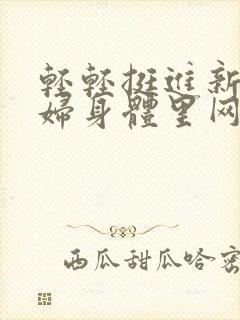 轻轻挺进新
婦身體里网
西瓜甜瓜哈密